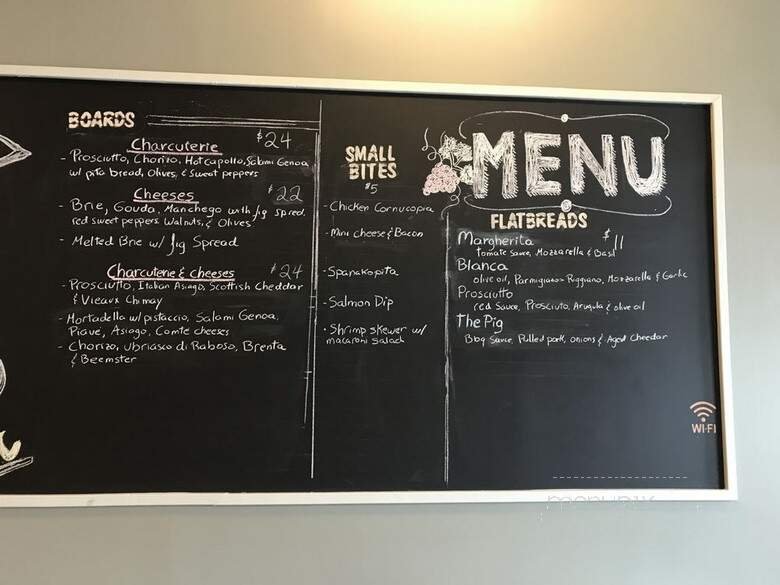 BOARDS
Charcuterie $24
- Prosciutto, Chorizo, Hot capollo, Salami Genoa
w/ pita bread, Olives, & Sweet peppers
Cheeses $22
- Brie, Gouda, Manchego with fig spred,
red sweet peppers, Walnuts, & Olives
- Melted Brie w/ fig Spread
Charcuterie & cheeses $24
- Prosciutto, Italian Asiago, Scottish Cheddar
& Vieaux Chimay
- Mortadella w/ pistaccio, Salami Genoa,
Piave, Asiago, Comte cheeses
- Chorizo, Ubriasco di Raboso, Brenta
& Beemster
SMALL
BITES
$5
- Chicken Cornucopia
- Mini cheese & Bacon
- Spanakopita
- Salmon Dip
- Shrimp skewer w/
macaroni Salad
MENU
FLATBREADS
Margherita $11
tomato Sauce, Mozzarella & Basil
Blanca
olive oil, Parmigiano Riggiano, Mozzarella & Garlic
Prosciutto
red Sauce, Prosciuto, Arugula & olive oil
The Pig
Bbq Sauce, Pulled pork, onions & Aged Chedar
WI-FI